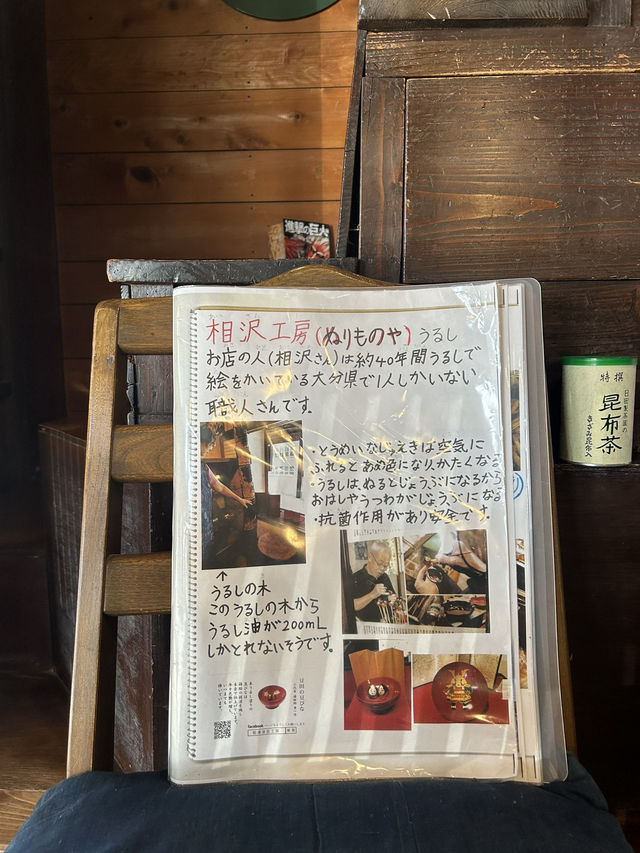 進撃の巨人
相沢工房(ぬりものや)うるし
お店の人(相沢さん)は約40年間うるしで
絵をかいている大分県で1人しかいない
職人さんです。
・とうめいなじょえきは空気に
ふれるとあめ色になりかたくなる
・うるしは、ぬるとじょうぶになるから
おはしやうつわがじょうぶになる
・抗菌作用があり安全です。
↑
うるしの木
このうるしの木から
うるし油が200mL
しかとれないそうです。
豆田の豆びな
facebook
特撰
昆布茶